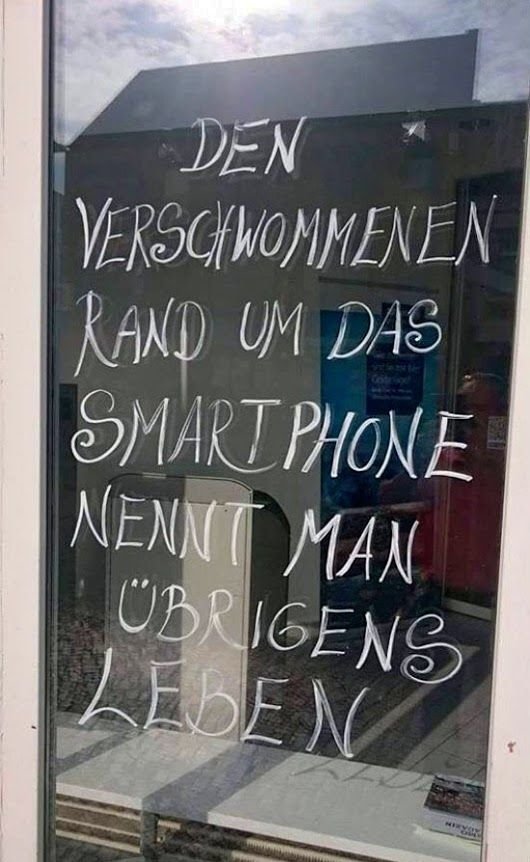 DEN
VERSCHWOMMENEN
RAND UM DAS
SMARTPHONE
NENNT MAN
ÜBRIGENS
LEBEN